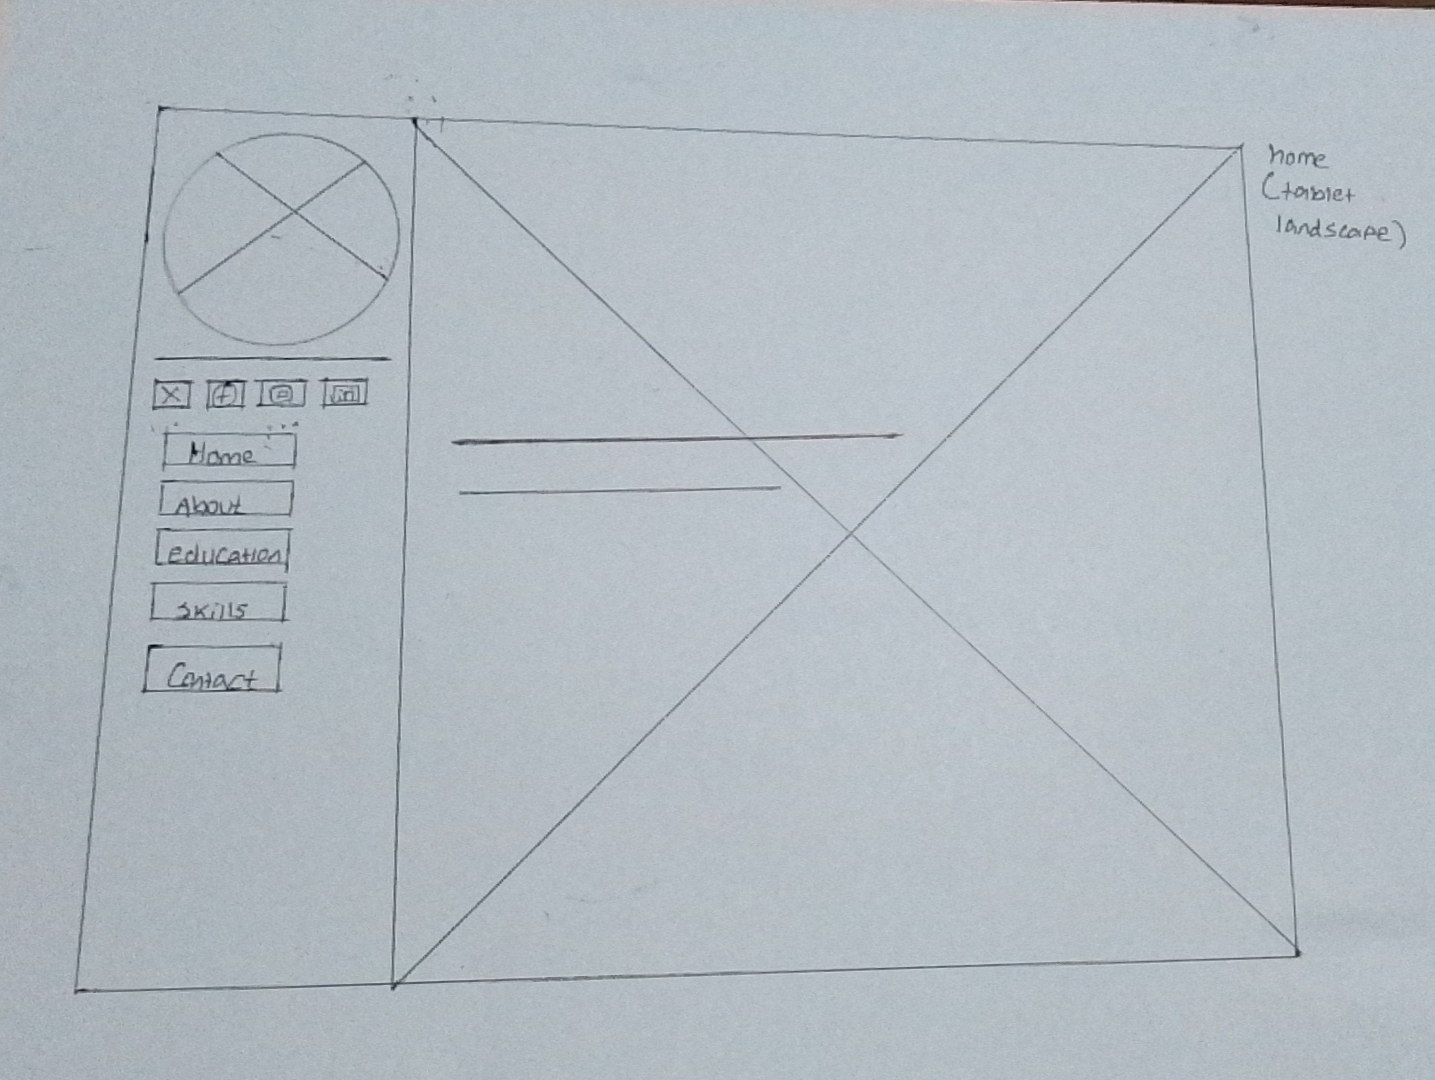 home
(tablet
landscape)
X f in
Home
About
Education
Skills
Contact